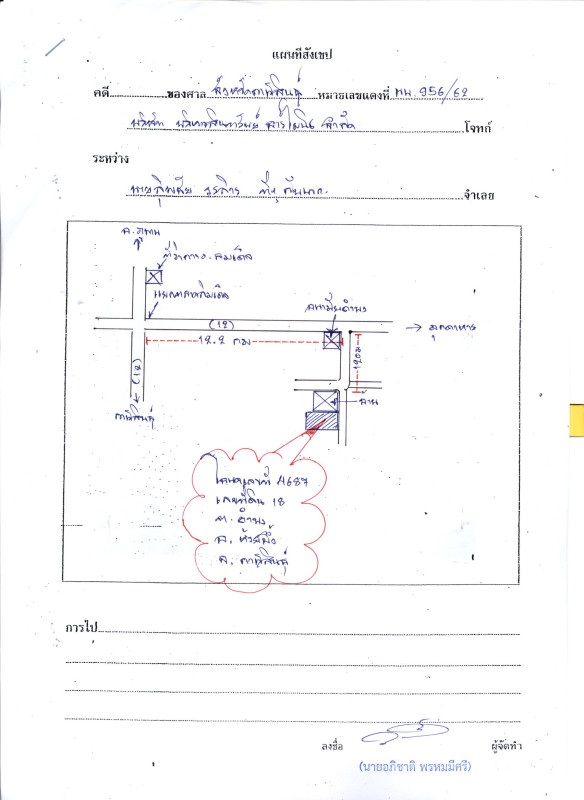 แผนที่สังเขป
คดี ของศาล จังหวัดกาฬสินธุ์ หมายเลขแดงที่ ผบ. 956/62
บริษัท บริหารสินทรัพย์ จำกัด โจทก์
ระหว่าง
จำเลย
ที่ว่าการ อ.สมเด็จ
แยกตลาดสมเด็จ
(12)
→ มุกดาหาร
12.2 กม
120ม
(12)
กาฬสินธุ์
บ้าน
โฉนดเลขที่ 4687
เลขที่ดิน 18
ต. คำบง
อ. ห้วยผึ้ง
จ. กาฬสินธุ์
การไป
ลงชื่อ ผู้จัดทำ
(นายอภิชาติ พรหมมีศรี)